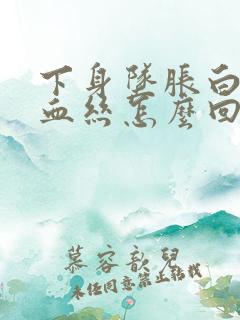 下身墜脹白
血絲怎麼回
慕容歆兒
未经同意禁止转载